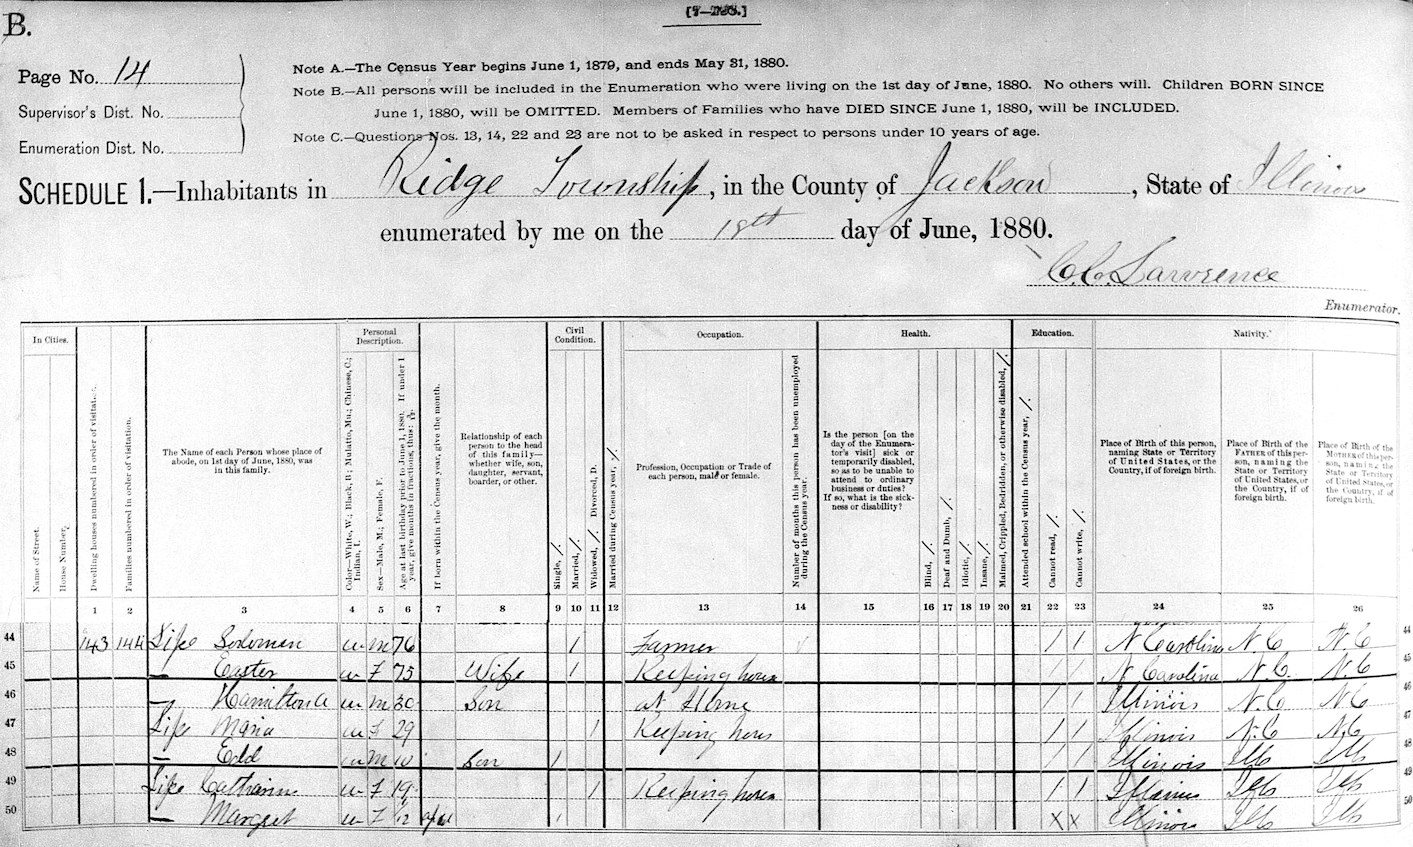 B.
Page No. 14
Supervisor's Dist. No.
Enumeration Dist. No.
Note A.—The Census Year begins June 1, 1879, and ends May 31, 1880.
Note B.—All persons will be included in the Enumeration who were living on the 1st day of June, 1880. No others will. Children BORN SINCE
June 1, 1880, will be OMITTED. Members of Families who have DIED SINCE June 1, 1880, will be INCLUDED.
Note C.—Questions Nos. 13, 14, 22 and 23 are not to be asked in respect to persons under 10 years of age.
SCHEDULE 1.—Inhabitants in Ridge Township, in the County of Jackson, State of Illinois
enumerated by me on the 18th day of June, 1880.
C.C. Lawrence
Enumerator.
In Cities.
Name of Street.
House Number.
Dwelling houses numbered in order of visitat
Families numbered in order of visitation.
The Name of each Person whose place of
abode, on 1st day of June, 1880, was
in this family.
Personal
Description.
Color—White, W.; Black, B.; Mulatto, Mu.; Chinese, C.;
Indian, I.
Sex—Male, M.; Female, F.
Age at last birthday prior to June 1, 1880. If under 1
year, give months in fractions, thus: 3/12.
If born within the Census year, give the month.
Relationship of each
person to the head
of this family—
whether wife, son,
daughter, servant,
boarder, or other.
Civil
Condition.
Single, /.
Married, /.
Widowed, /. Divorced, D.
Married during Census year, /.
Occupation.
Profession, Occupation or Trade of
each person, male or female.
Number of months this person has been unemployed
during the Census year.
Health.
Is the person [on the
day of the Enumera-
tor's visit] sick or
temporarily disabled,
so as to be unable to
attend to ordinary
business or duties?
If so, what is the sick-
ness or disability?
Blind, /.
Deaf and Dumb, /.
Idiotic, /.
Insane, /.
Maimed, Crippled, Bedridden, or otherwise disabled, /.
Education.
Attended school within the Census year, /.
Cannot read, /.
Cannot write, /.
Nativity.
Place of Birth of this person,
naming State or Territory
of United States, or the
Country, if of foreign birth.
Place of Birth of the
FATHER of this per-
son, naming the
State or Territory
of United States, or
the Country, if of
foreign birth.
Place of Birth of the
MOTHER of this per-
son, naming the
State or Territory
of United States, or
the Country, if of
foreign birth.
1 2 3 4 5 6 7 8 9 10 11 12 13 14 15 16 17 18 19 20 21 22 23 24 25 26
44 143 144 Lipe Soloman W M 76 / Farmer / / N Carolina N.C N.C 44
45 — Easter W F 75 Wife / Keeping house / / N Carolina N.C. N.C 45
46 — Hamilton A W M 30 Son at Home / / Illinois N.C N C 46
47 Lipe Maria W F 29 / Keeping hous / / Illinois N.C N.C 47
48 — Edd W M 10 Son / / / Illinois Ills Ills 48
49 Lipe Catharine W F 19 / Keeping house / / Illinois Ills Ills 49
50 — Margret W F /12 / X X Illinois Ills Ills 50